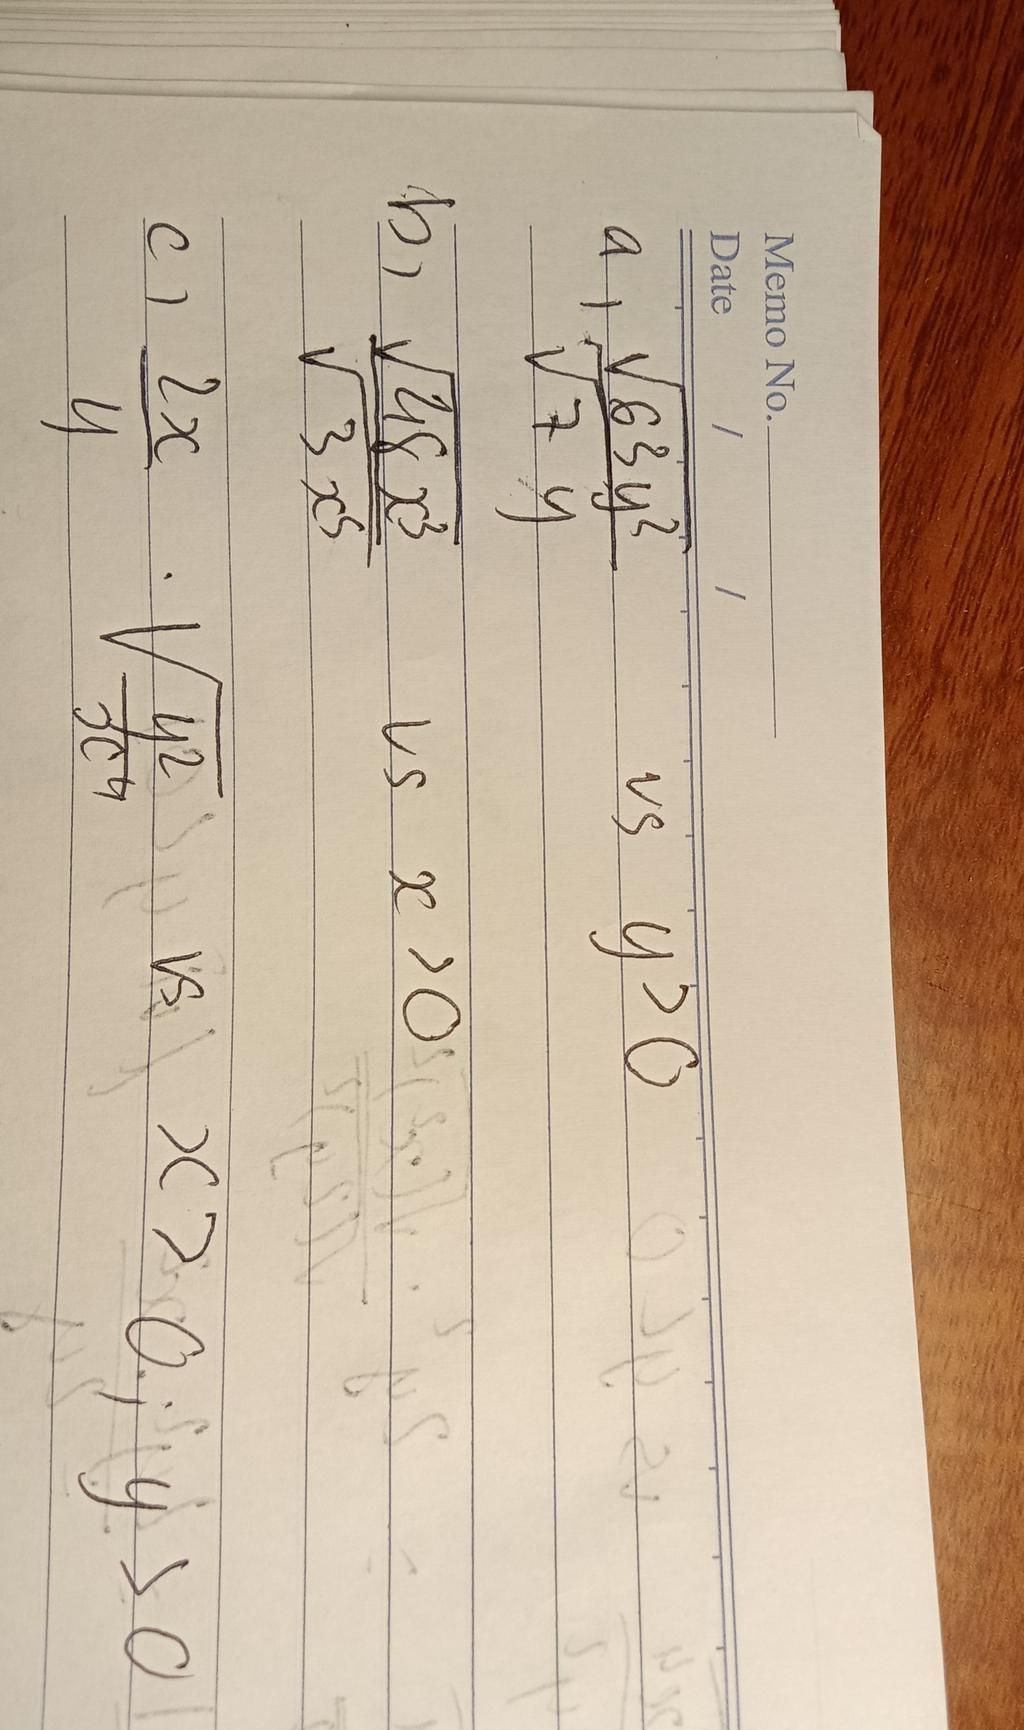 Memo No.
Date / /
a, √63y³ / √7y vs y>0
b, √48x³ / √3x⁵ vs x>0
c, 2x/y . √(y²/x⁴) vs x>0; y>0